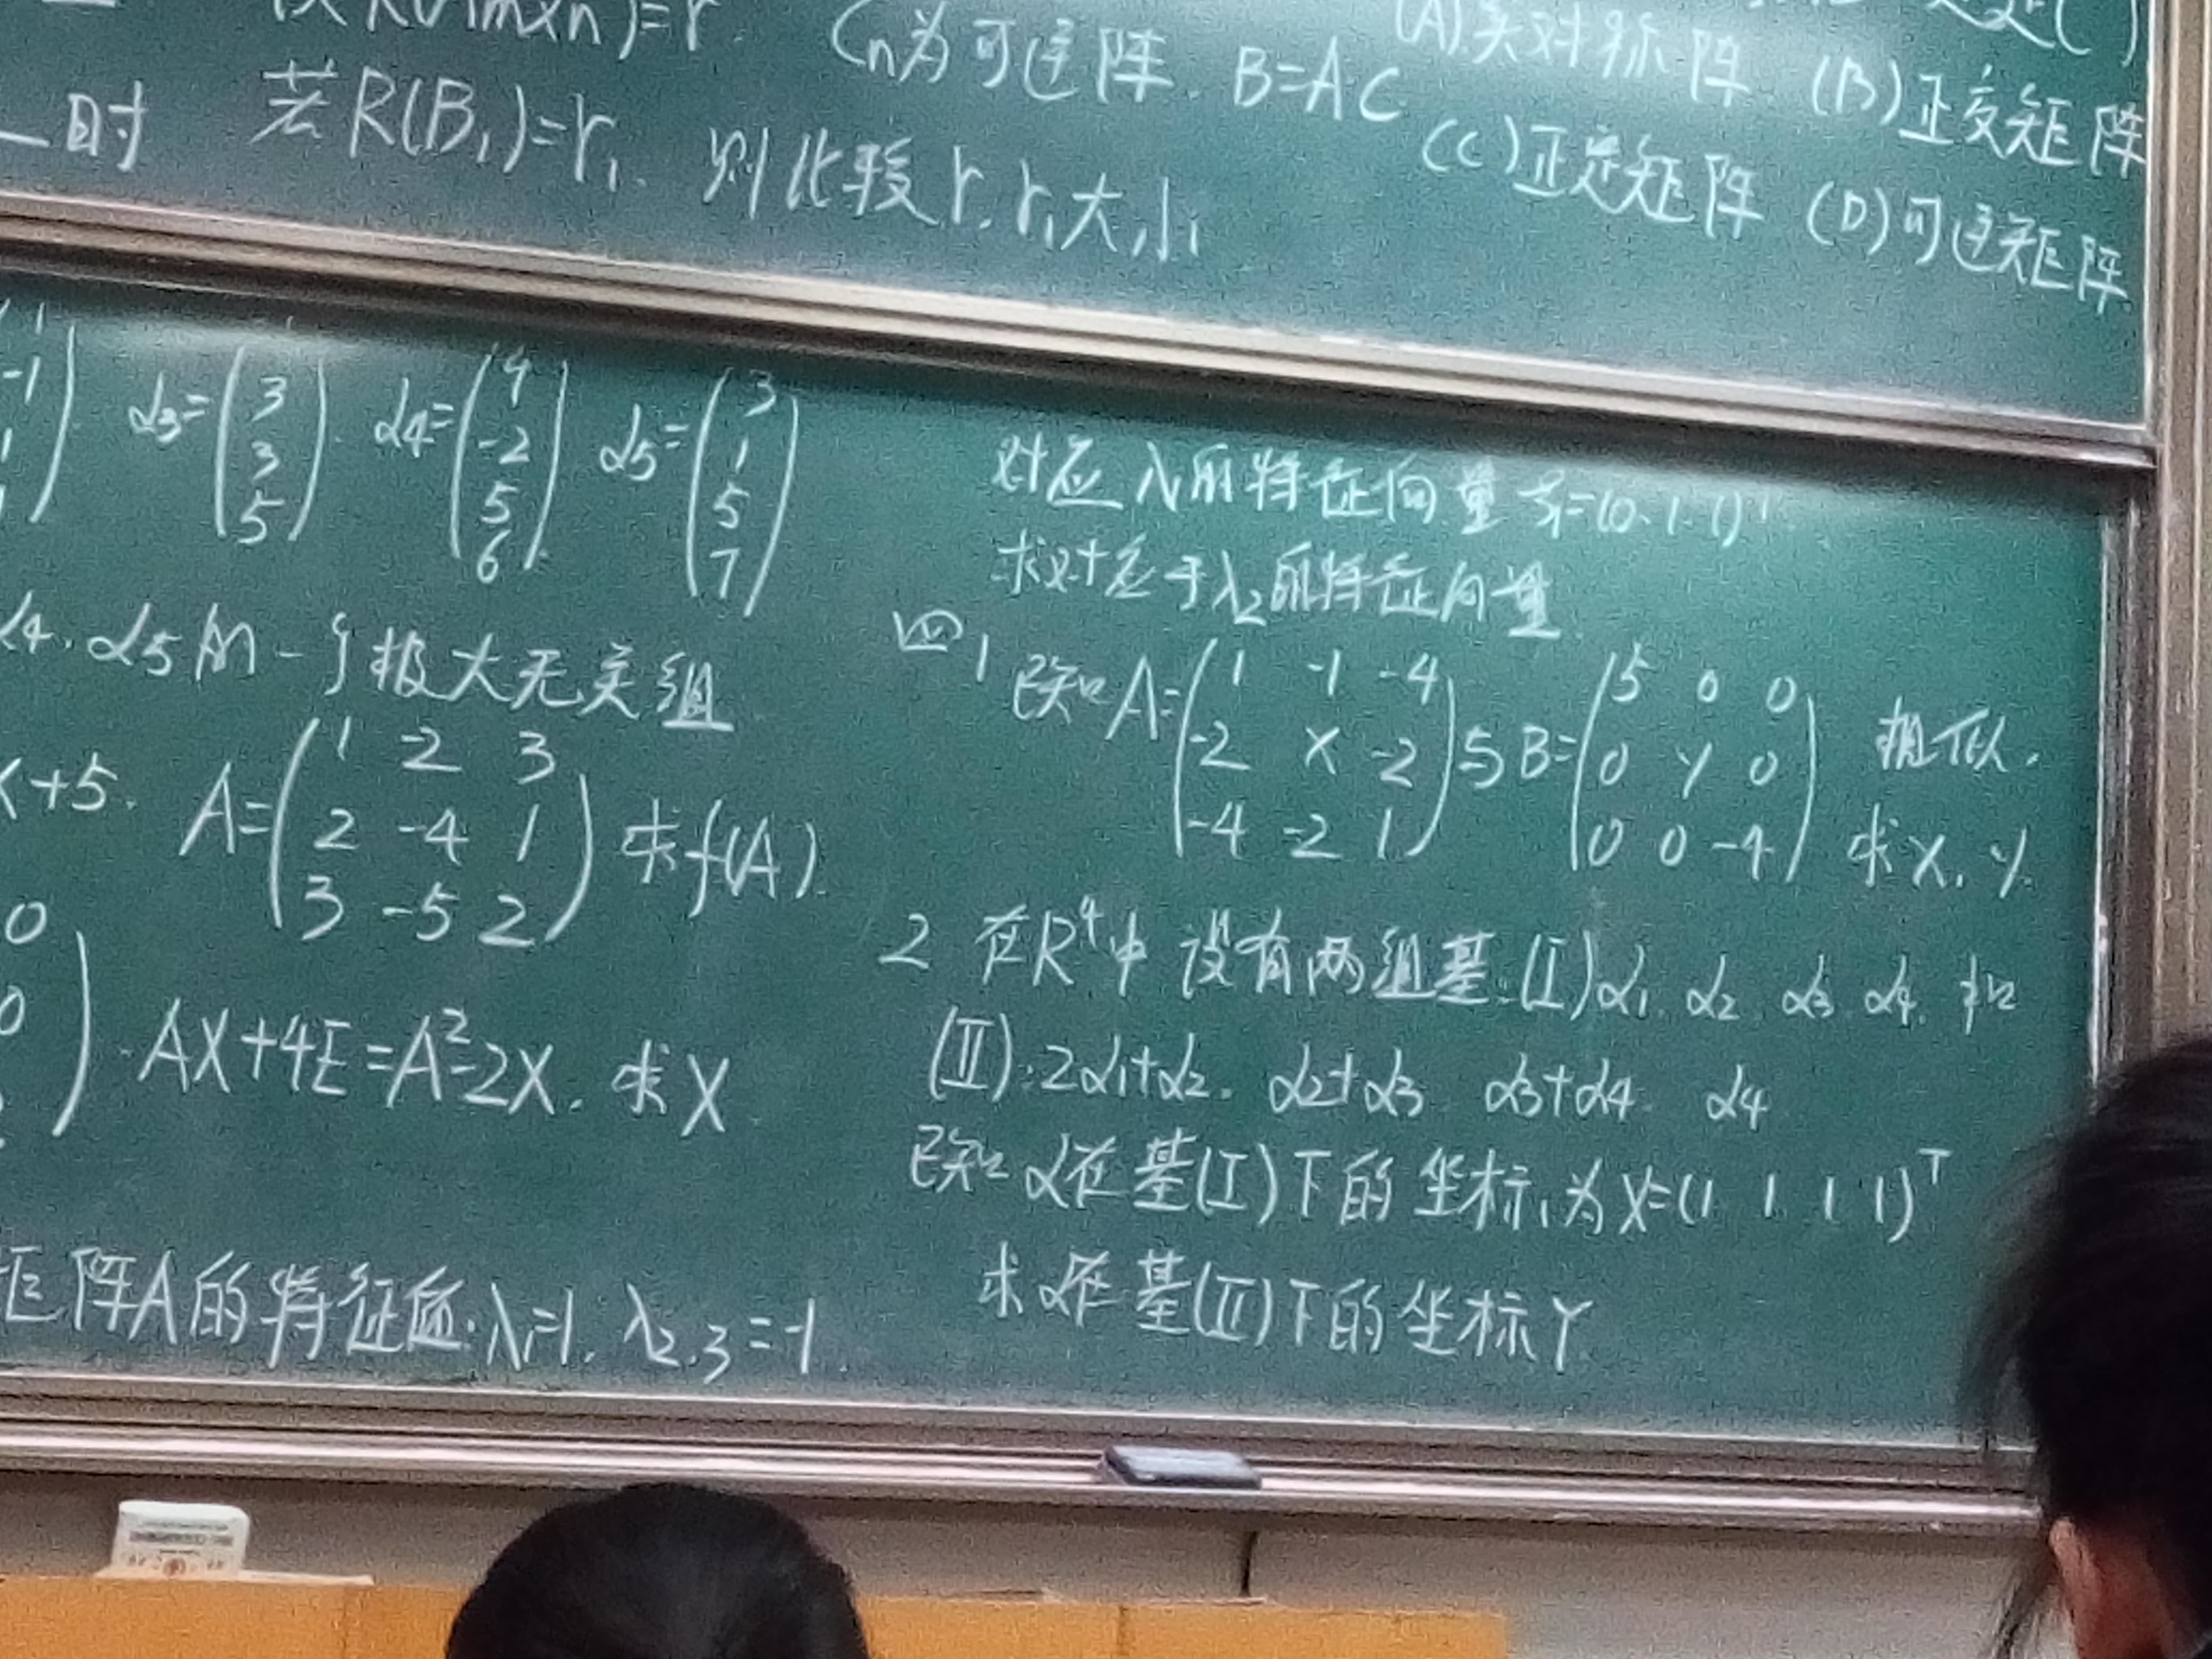 R(Am×n)=r. Cn为可逆阵. B=AC
时 若R(B₁)=r₁. 则比较r, r₁大小
(A)实对称阵 (B)正交矩阵
(C)正定矩阵 (D)可逆矩阵
α3=(3 3 5). α4=(4 -2 5 6) α5=(3 1 5 7)
α4. α5的一个极大无关组
x+5. A=(1 -2 3
2 -4 1
3 -5 2) 求f(A).
AX+4E=A²-2X. 求X
矩阵A的特征值: λ=1. λ2,3=-1.
对应λ的特征向量 ξ=(0.1.1)ᵀ.
求对应于λ2的特征向量.
四1 已知A=(1 -1 -4
-2 X -2
-4 -2 1) 与B=(5 0 0
0 Y 0
0 0 -4) 相似.
求X, Y.
2 在R⁴中 设有两组基:(I)α1. α2. α3 α4. 和
(II):2α1+α2. α2+α3 α3+α4. α4
已知α在基(I)下的坐标为X=(1 1 1 1)ᵀ
求α在基(II)下的坐标Y